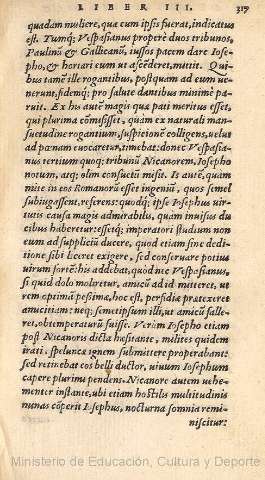 LIBER III. 319
quadam muliere, qua cum ipsis fuerat, indicatus
est. Tumq; Vespasianus properè duos tribunos,
Paulinū & Gallicanū, iussos pacem dare Iose-
pho, & hortari eum ut ascēderet, mittit. Qui-
bus tamē ille rogantibus, postquam ad eum uene-
nerunt, fidemq; pro salute dantibus minimè pa-
ruit. Ex his autē magis quæ pati meritus esset,
qui plurima cōmisisset, quàm ex naturali man-
suetudine rogantium, suspicionē colligens, uelut
ad pœnam euocaretur, timebat: donec Vespasia-
nus tertium quoq; tribunū Nicanorem, Iosepho
notum, atq; olim consuetū misit. Is autē, quàm
mite in eos Romanorū esset ingeniū, quos semel
subiugassent, referens: quodq; ipse Iosephus uir-
tutis causa magis admirabilis, quàm inuisus du
cibus haberetur: essetq; imperatori studium non
eum ad suppliciū ducere, quod etiam sine dedi-
tione sibi liceret exigere, sed conseruare potius
uirum fortē: his addebat, quòd nec Vespasianus,
si quid dolo moliretur, amicū ad id mitteret, ut
rem optimā pessimæ, hoc est, perfidiæ prætexeret
amicitiam: neq; semetipsum illi, ut amicū falle-
ret, obtemperaturū fuisse. Verùm Iosepho etiam
post Nicanoris dicta hæsitante, milites quidem
irati, speluncæ ignem submittere properabant:
sed retinebat eos belli ductor, uiuum Iosephum
capere plurimi pendens. Nicanore autem uehe-
menter instante, ubi etiam hostilis multitudinis
minas cōperit Iosephus, nocturna somnia remi-
niscitur:
Ministerio de Educación, Cultura y Deporte